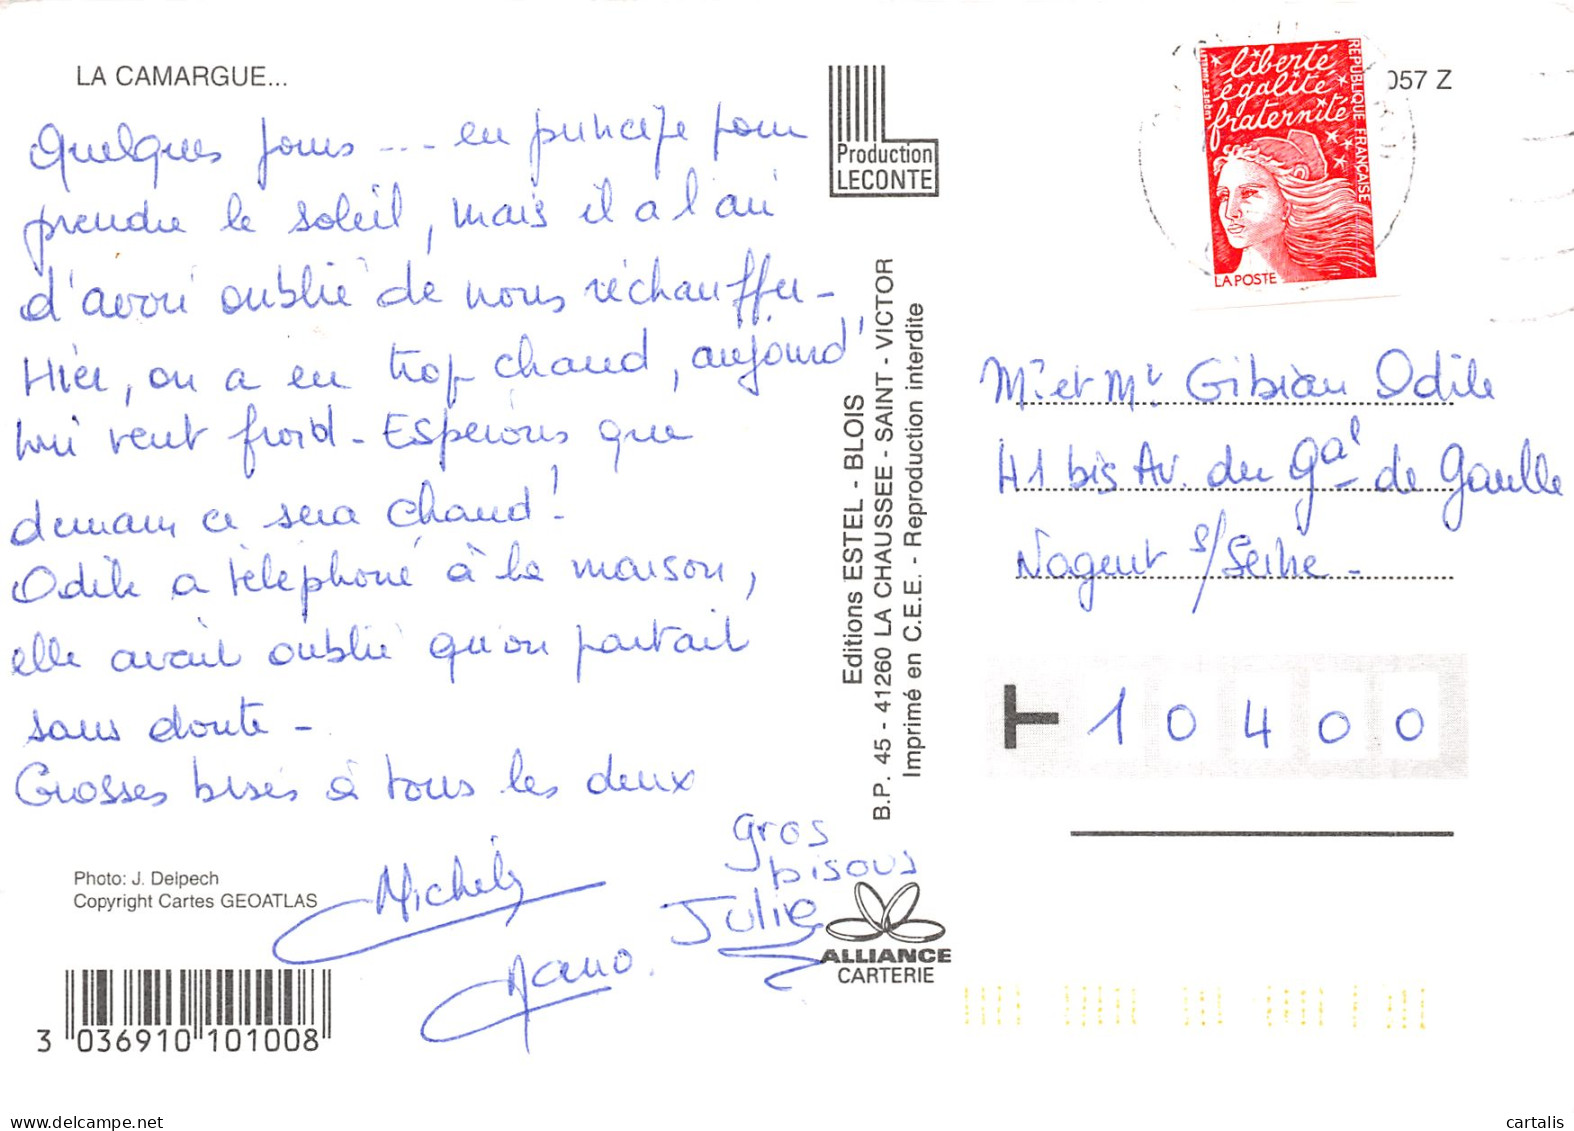 LA CAMARGUE...
Quelques jours --- en principe pour
prendre le soleil, mais il a l'air
d'avoir oublié de nous réchauffer -
Hier, on a eu trop chaud, aujourd'
hui vent froid - Espérons que
demain ce sera chaud !
Odile a téléphoné à la maison,
elle avait oublié qu'on partait
sans doute -
Grosses bises à tous les deux
Michèle
gros
bisous
Julie
Photo: J. Delpech
Copyright Cartes GEOATLAS
3 036910 101008
Production
LECONTE
Editions ESTEL - BLOIS
B.P. 45 - 41260 LA CHAUSSEE - SAINT - VICTOR
Imprimé en C.E.E. - Reproduction interdite
ALLIANCE
CARTERIE
057 Z
liberté
égalité
fraternité
REPUBLIQUE FRANÇAISE
LA POSTE
Mr et Mr Gibian Odile
41 bis Av. du Gal de Gaulle
Nogent s/Seine -
10400
delcampe.net
cartalis